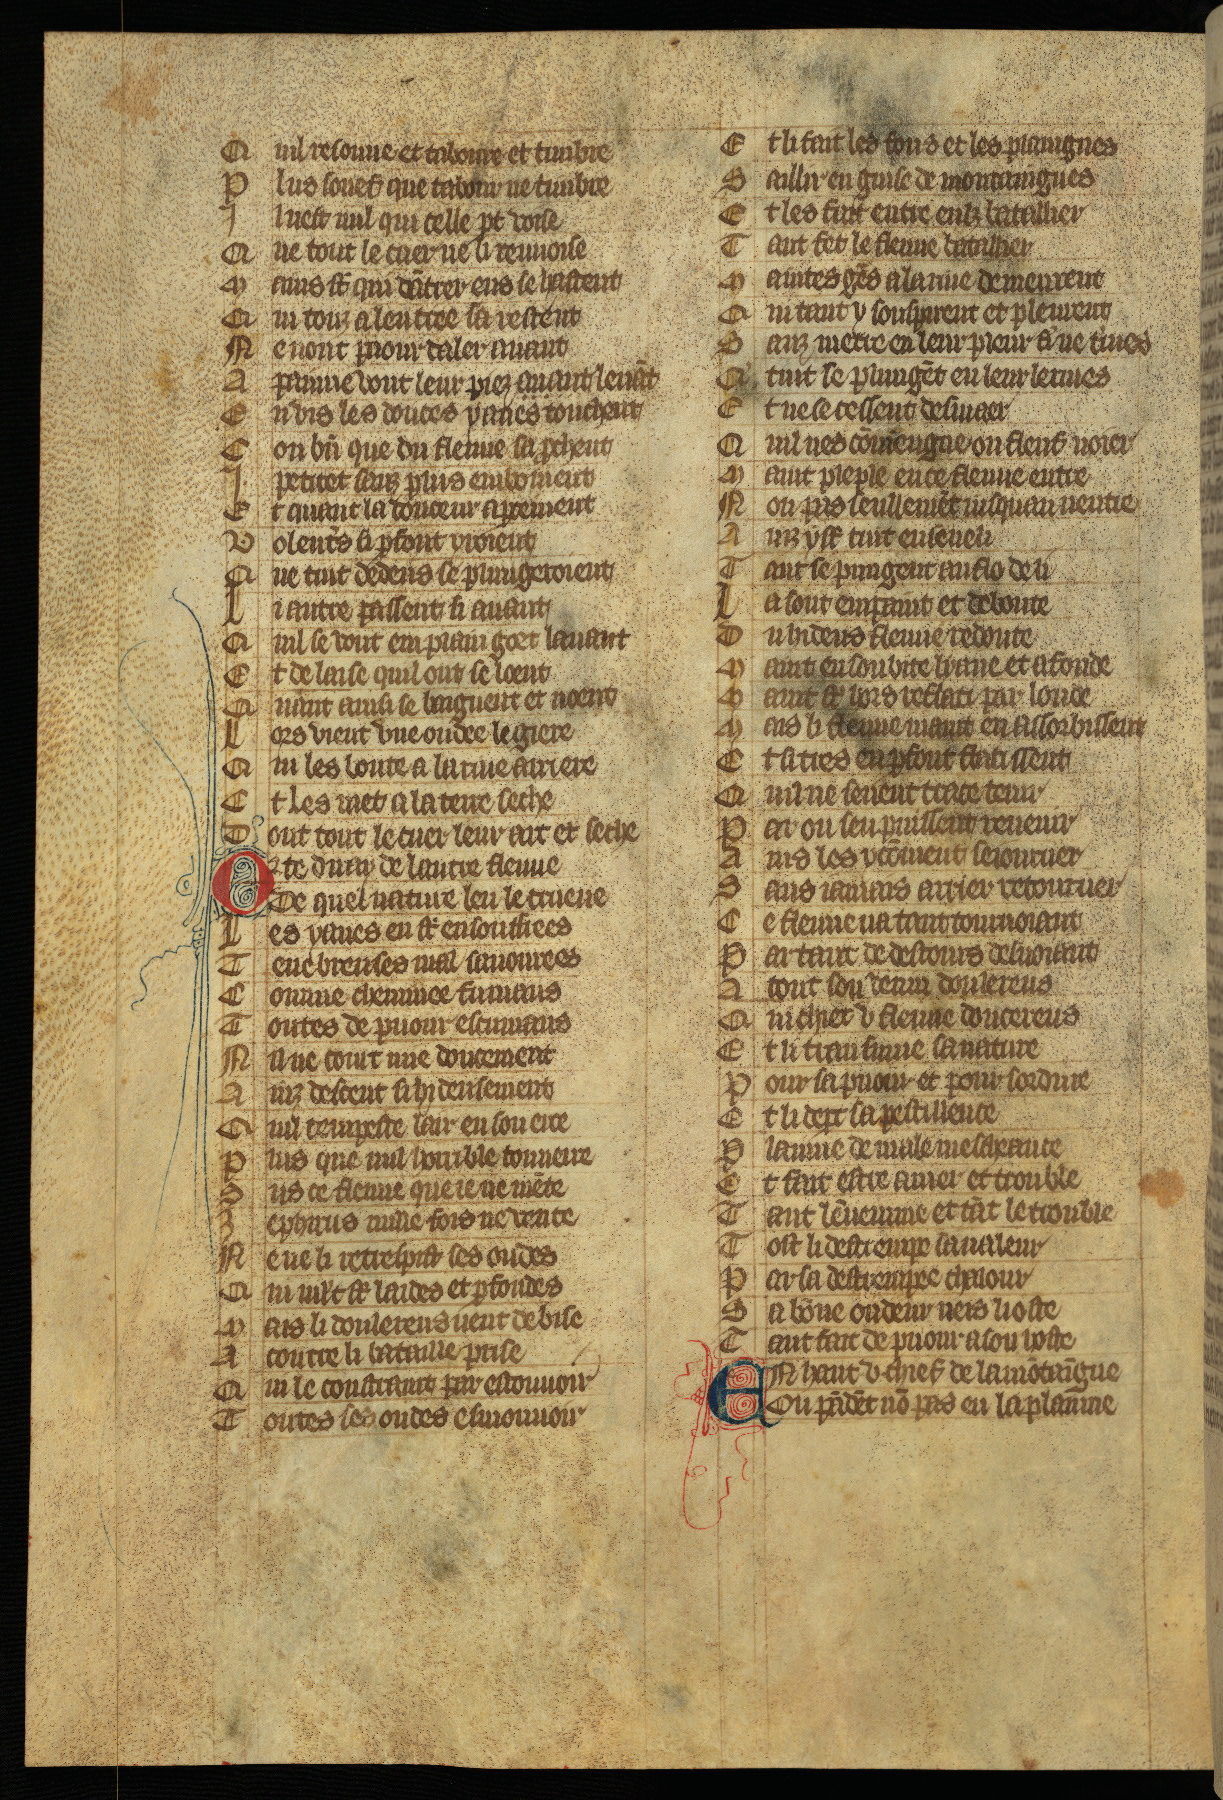 Q uil resonne et taboure et timbre
P lus souef que tabour ne timbre
I l nest nul qui celle pt voise
Q ue tout le cuer ne li renuoise
M ains st qui dentrer ens se hastent
Q ui touz a lentree sarestent
N e nont pooir daler auant
A painne vont leur piez auant leuat
E nuis les douces yaues touchent
C on bn que du fleuue sapchent
I petitet sanz plus en boiuent
E t quant la douceur aperceiuent
V olentiers si pfont yroient
Q ue tuit dedens se plungeroient
L i autre passent si auant
Q uil se vont en plain goet lauant
E t de laise quil ont se loent
Q uant ainsi se baignent et noent
L ors vient vne ondee legiere
Q ui les boute a la riue arriere
E t les met a la terre seche
D ont tout le cuer leur art et seche
O r te diray de lautre fleuue
De quel nature len le treuue
L es yaues en st ensouffrees
T enebreuses mal sauourees
C omme cheminee fumans
T outes de puour escumans
N il ne court mie doucement
A inz descent si hideusement
Q uil tempeste lair en son erre
P lus que nul horrible tonnerre
S us ce fleuue que ie ne mente
Z ephirus nulle fois ne vente
N e ne li recrespist ses ondes
Q ui mlt st laides et pfondes
M ais li doulereus uent de bise
A contre li bataille prise
Q ui le constraint par estouuoir
T outes ses ondes esmouuoir
E t li fait les fons et les plaingnes
S aillir en guise de montaingnes
E t les fait entre eulz bataillier
T ant fet le fleuue bataillier
M aintes ges a la riue demeurent
Q ui tant y souspirent et pleurent
S anz metre en leur pleur fin ne times
Q tuit se plungent en leur lermes
E t ne se cessent desmaer
Q uil nes conuiengne ou fleuue noier
M aint pleple en ce fleuue entre
N on pas seullemet iusquau uentre
A inz y st tuit enseueli
T ant se plungent au flo de li
L a sont empaint et deboute
D u hideus fleuue redoute
M aint en sorbite lyaue et afonde
M aint st hors reflati par londe
M ais li fleuue maint en assorbissent
E t si tres en pfont flatissent
Q uil ne seuent trace tenir
P ar ou sen puissent reuenir
A ins les y conuient seiourner
S ans iamais arrier retourner
C e fleuue ua tant tournoiant
P ar tant de destours desuoiant
A tout son venin doulereus
Q ui chiet v fleuue doucereus
E t li transmue sa nature
P our sa puour et pour sordure
E t li dept sa pestillence
P lainne de male mescheance
E t fait estre amer et trouble
T ant lenuenime et tat le trouble
T ost li destrempe sa ualeur
P ar sa destrempee chalour
S a bonne oudeur neis li oste
T ant fait de puour a son hoste
E N haut v chief de la motaigne
Ou padet no pas en la plainne